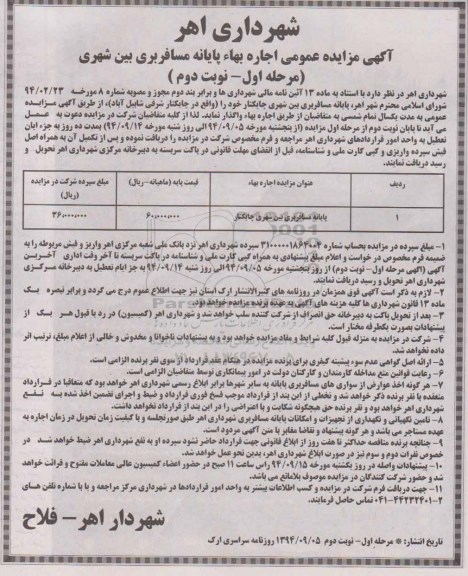 شهرداری اهر
آگهی مزایده عمومی اجاره بهاء پایانه مسافربری بین شهری
(مرحله اول- نوبت دوم)
شهرداری اهر در نظر دارد با استناد به ماده ۱۳ آئین نامه مالی شهرداری ها و برابر بند دوم مجوز و مصوبه شماره ۸ مورخه ۹۴/۰۲/۲۳
شورای اسلامی محترم شهر اهر، پایانه مسافربری بین شهری جابکنار خود را (واقع در جابکنار شرقی شایل آباد)، از طریق آگهی مزایده
عمومی به مدت یکسال تمام شمسی به متقاضیان از طریق اجاره بهاء واگذار نماید. لذا از کلیه متقاضیان شرکت در مزایده دعوت به عمل
می آید تا پایان نوبت دوم از مرحله اول مزایده (از پنجشنبه مورخه ۹۴/۰۹/۰۵ الی روز شنبه مورخه ۹۴/۰۹/۱۴) بمدت ده روز به جزء ایان
تعطیل به واحد امور قراردادهای شهرداری اهر مراجعه و فرم مخصوص شرکت در مزایده را دریافت نموده و پس از تکمیل آن به همراه اصل
فیش سپرده واریزی و کپی کارت ملی و شناسنامه، قبل از انقضای مهلت قانونی در پاکت سربسته به دبیرخانه مرکزی شهرداری اهر تحویل و
رسید دریافت نمایند.
ردیف عنوان مزایده اجاره بهاء قیمت پایه (ماهیانه-ریال) مبلغ سپرده شرکت در مزایده (ریال)
۱ پایانه مسافربری بین شهری جابکنار ۶۰،۰۰۰،۰۰۰ ۳۶،۰۰۰،۰۰۰
۱- مبلغ سپرده در مزایده بحساب شماره ۳۱۰۰۰۰۰۱۸۶۴۰۰۴ سپرده شهرداری اهر نزد بانک ملی شعبه مرکزی اهر واریز و فیش مربوطه را به
ضمیمه فرم مخصوص در خواست و اعلام مبلغ پیشنهادی به همراه کپی کارت ملی و شناسنامه در پاکت سربسته تا آخر وقت اداری آخرین
آگهی (آگهی مرحله اول- نوبت دوم) از روز پنجشنبه مورخه ۹۴/۰۹/۰۵ الی روز شنبه ۹۴/۰۹/۱۴ به جز ایام تعطیل به دبیرخانه مرکزی
شهرداری اهر تحویل و رسید دریافت نمایند.
۲- لازم به ذکر است آگهی فوق همزمان در روزنامه های کثیرالانتشار ارک استان نیز جهت اطلاع عموم درج می گردد و برابر تبصره یک
ماده ۱۳ قانون شهرداری ها کلیه هزینه های آگهی به عهده برنده مزایده خواهد بود.
۳- بعد از تحویل پاکت به دبیرخانه حق انصراف از شرکت کننده سلب خواهد شد و شهرداری اهر (کمیسیون) در رد یا قبول هر یک از
پیشنهادات بصورت یکطرفه مختار است.
۴- شرکت در مزایده به منزله قبول کلیه شرایط و مفاد مزایده خواهد بود و به پیشنهادات ناخوانا و مخدوش و خالی از اعلام مبلغ، ترتیب اثر
داده نخواهد شد.
۵- ارائه اصل گواهی عدم سوء پیشنه کیفری برای برنده مزایده در هنگام عقد قرارداد از سوی نفر برنده الزامی است.
۶- رعایت قوانین منع مداخله کارمندان و کارکنان دولت در امور پیمانکاری توسط متقاضیان الزامی است.
۷- هر گونه اخذ عوارض از سواری های مسافربری پایانه به سایر شهرها برابر ابلاغ رسمی شهرداری اهر خواهد بود که متعاقبا در قرارداد
منعقده با نفر برنده ذکر خواهد شد و تخطی از این بند از قرارداد موجب فسخ فوری قرارداد و ضبط و اجرای تضمین اخذ شده به نفع
شهرداری اهر خواهد بود و نفر برنده حق هیچگونه شکایت و یا اعتراضی را در این بند از قرارداد نخواهد داشت.
۸- تامین نگهبانی و نگهداری از تجهیزات و امکانات پایانه مسافربری شهرداری اهر طبق صورتجلسه و با کیفیت زمان تحویل در زمان اجاره به
عهده مستاجر می باشد و هر گونه پیشنهاد و تقاضا مغایر با متن آگهی مردود است.
۹- چنانچه برنده مناقصه حداکثر تا هفت روز از ابلاغ قانونی جهت قرارداد حاضر نشود سپرده او به نفع شهرداری اهر ضبط خواهد شد در
خصوص نفرات دوم و سوم نیز در صورت ابلاغ شهرداری اهر، بدین نحو عمل خواهد شد.
۱۰- پیشنهادات واصله در روز یکشنبه مورخه ۹۴/۰۹/۱۵ راس ساعت ۱۱ صبح در حضور اعضاء کمیسیون عالی معاملات مفتوح و قرائت خواهد
شد و حضور شرکت کنندگان در مزایده موصوف بلامانع می باشد.
۱۱- جهت دریافت فرم شرکت در مزایده و کسب اطلاعات بیشتر به واحد امور قراردادها در شهرداری مرکز مراجعه و یا با شماره تلفن های
۰۴۱-۴۴۲۳۲۴۰۱-۲ تماس حاصل فرمایند.
شهردار اهر- فلاح
تاریخ انتشار: * مرحله اول- نوبت دوم ۱۳۹۴/۰۹/۰۵ روزنامه سراسری ارک